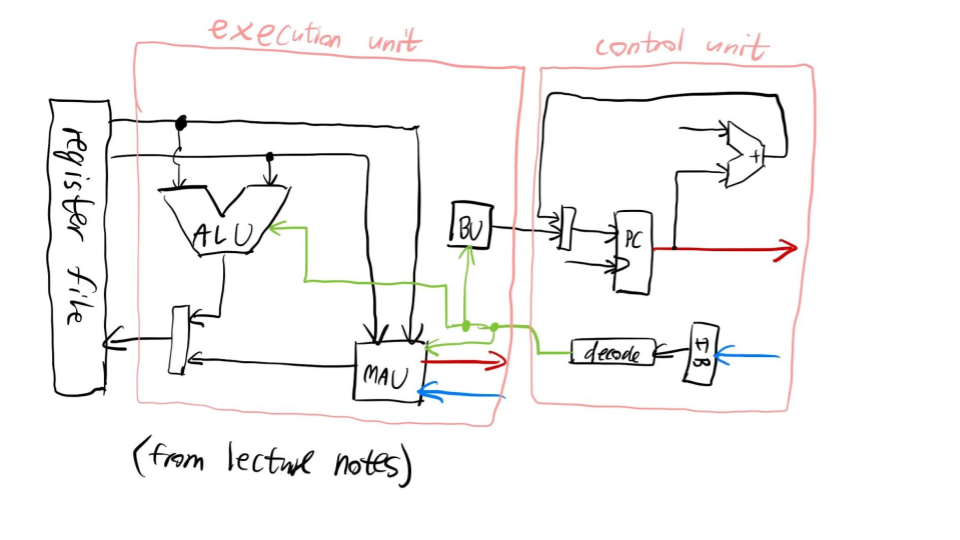 execution unit
control unit
register file
ALU
BU
PC
+
decode
IR
MAU
(from lecture notes)